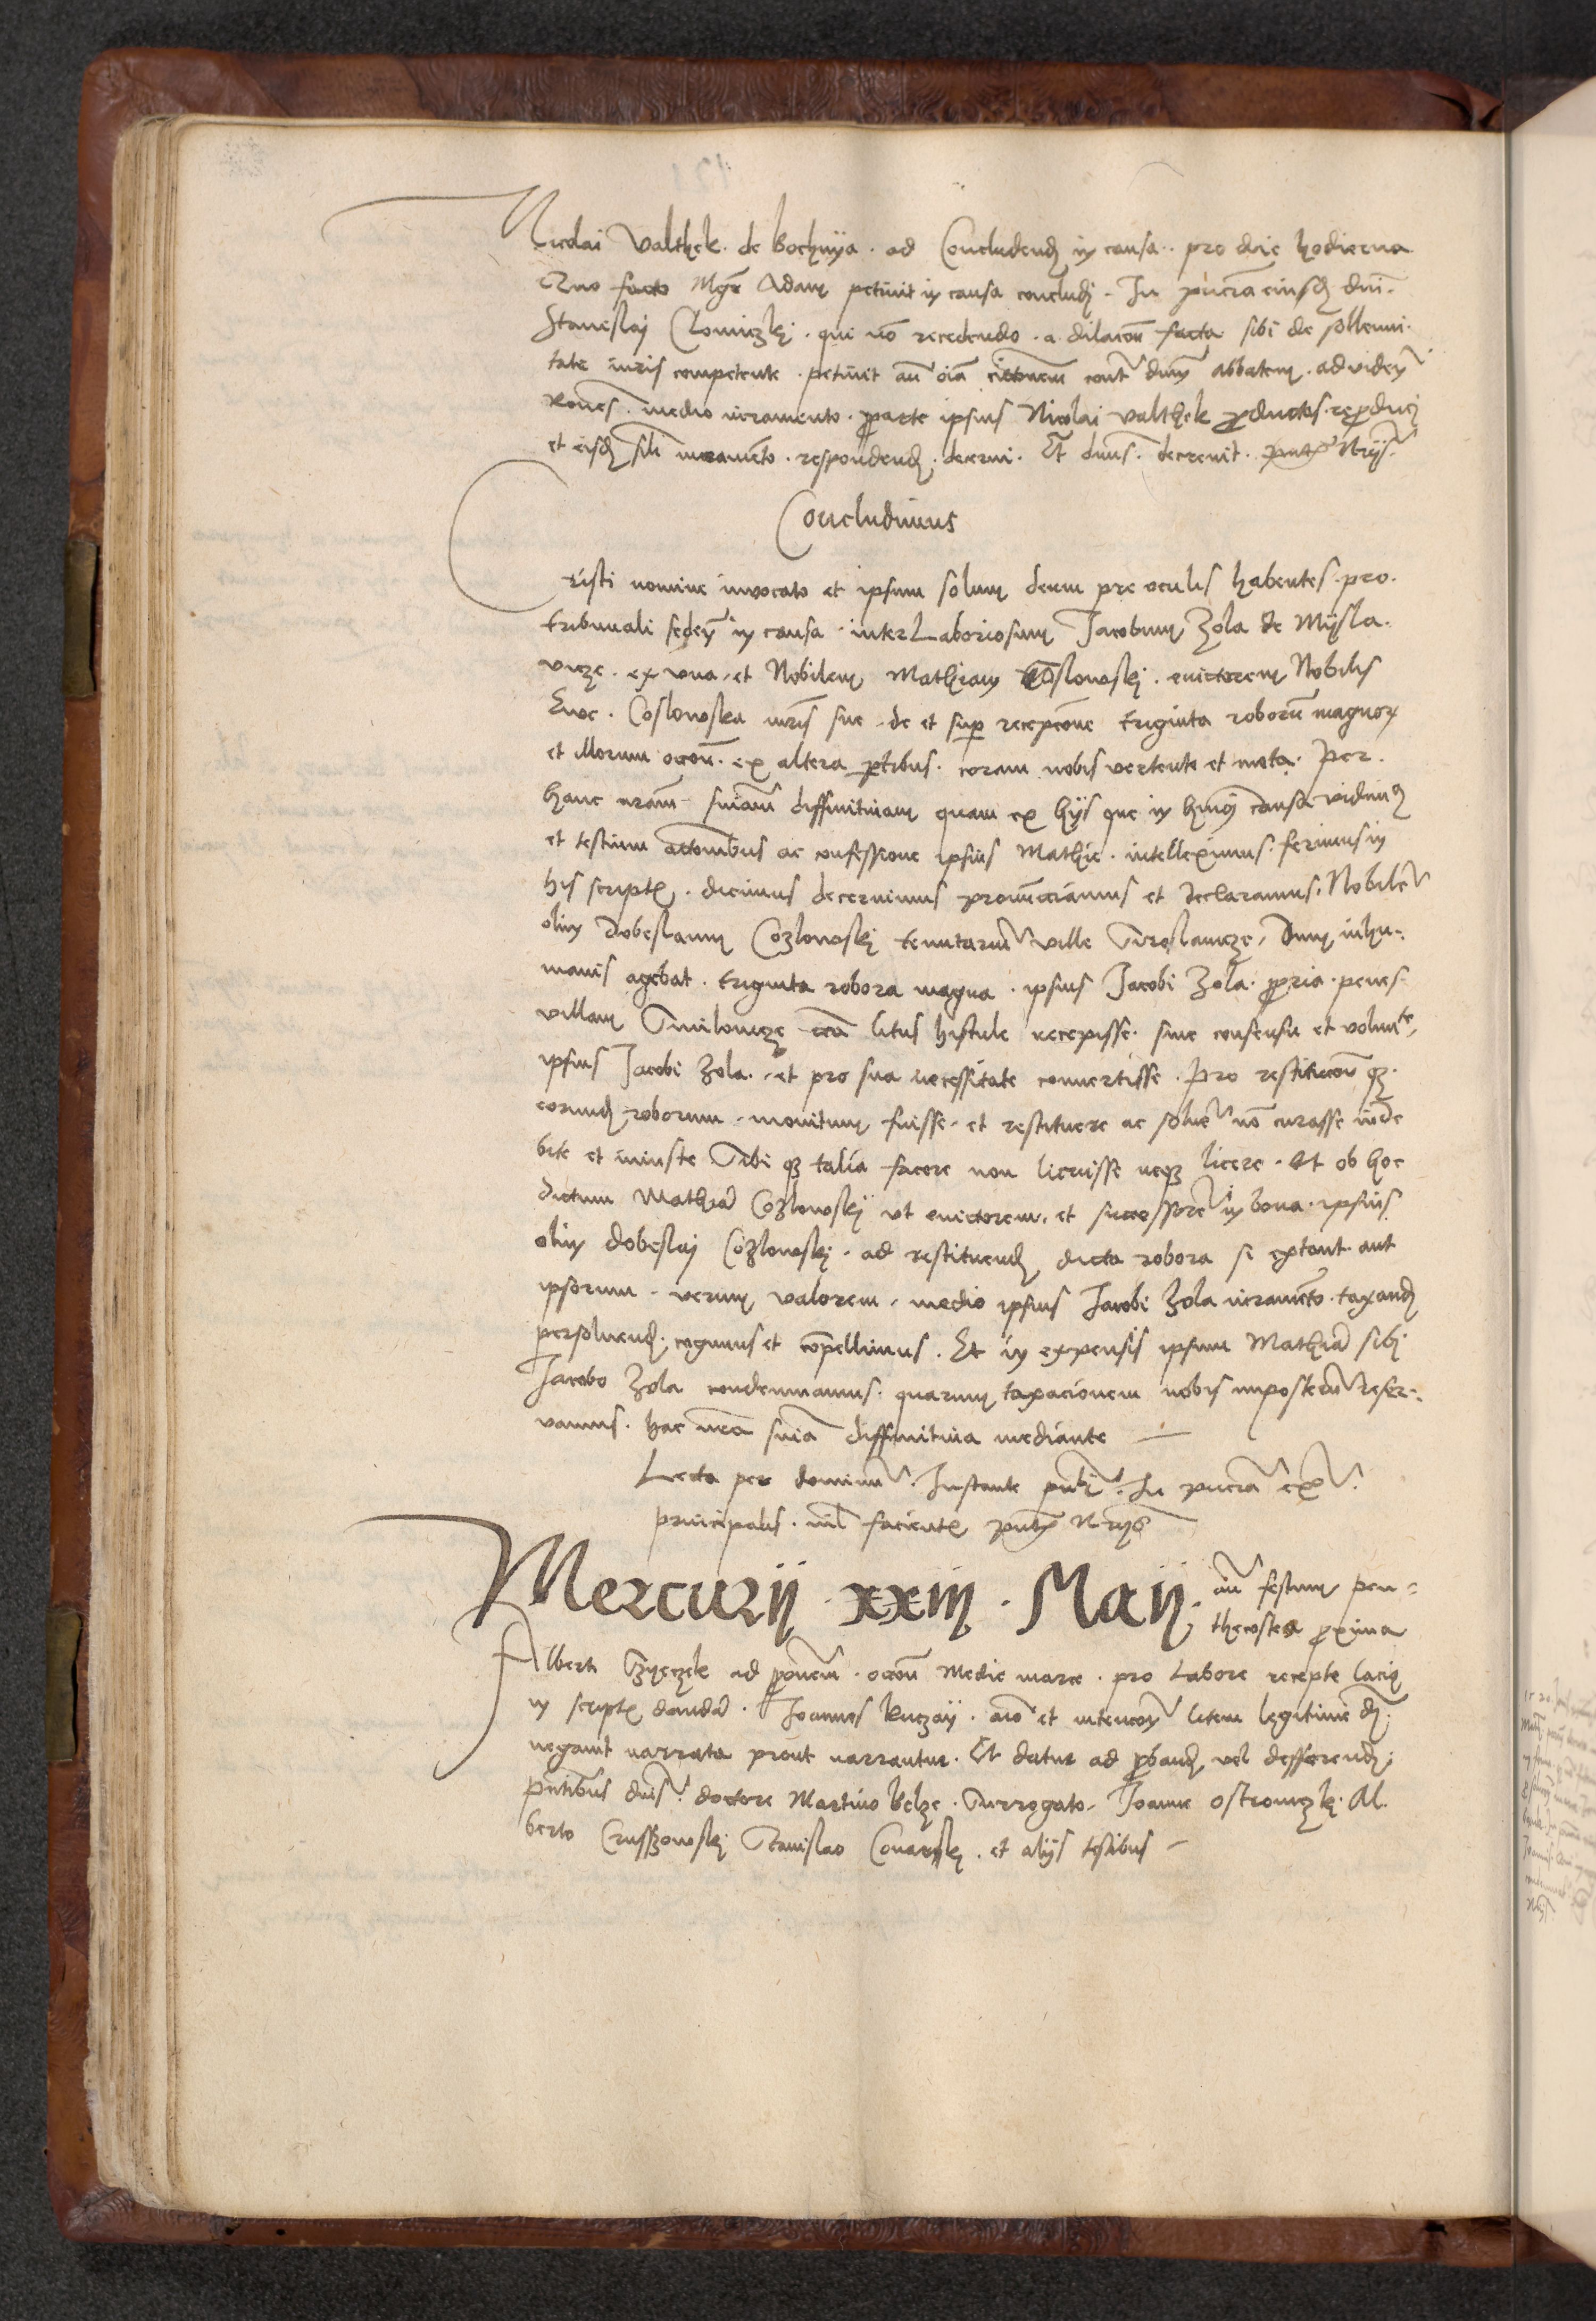 Nicolai Valthek de Bochnya ad Concludend in causa pro die hodierna
Quo facto Mgr Adam petivit in causa concludi In pncia eiusd dni
Stanislaj Chomiczkj qui no recedendo a dilacon facta sibi de sollenni
tate iuris competente petivit an oia citconem cont dnm abbatem ad viden
medio iuramento parte ipsius Nicolai Valthek productos reproduci
et eisd sili iuramento respondend decerni Et dnus decrevit
Concludimus
Cristi nomine invocato et ipsum solum deum pre oculis habentes pro
tribunali seden in causa inter Laboriosum Jacobum Zola de Mysla
vicze ex una et Nobilem Mathiam Coslowskj evictorem Nobilis
Eve Coslowska mris sue de et sup recepcone triginta roborum magnor
et illorum occon ex altera ptibus coram nobis vertente et mota Per
hanc nram sniam diffinitivam quam ex hijs que in hmoi causa vidimus
et testium attombus ac confessione ipsius Mathie intelleximus ferimus in
his scriptis dicimus decernimus pronucciamus et declaramus Nobilem
olim Dobeslaum Cozlowskj tenutarium ville Siroslawicze Dum inhu-
manis agebat triginta robora magna ipsius Jacobi Zola propria penes
villam Smilowicze circa litus histule recepisse sine consensu et volunte
ipsius Jacobi Zola et pro sua necessitate convertisse Pro restitucon qz
eorund roborum monitum fuisse et restituere ac solve no curasse inde
bite et iniuste Sibi qz talia facere non licuisse neqz licere Et ob hoc
dictum Mathia Cozlowskj ut evictorem et successore in bona ipsius
olim Dobeslaj Cozlowskj ad restituend dicta robora si extant aut
ipsorum verum valorem medio ipsius Jacobi Zola iuramento taxand
persolvend cogimus et compellimus Et in expensis ipsum Mathia sibi
Jacobo Zola condemnamus quarum taxacionem nobis imposteru reser-
vamus hac nra snia diffinitiva mediante
Lecta per dominu Instante In pncia
principalis nil facientis
Mercurij xxiij Maij an festum pen-
thecostes proxima
Alberti ad occon Medie marce pro Labore recepte
in scriptis danda Joannes Kuczay aio et intencon litem legitime
negavit narrata prout narrantur Et datur ad proband vel defferend
pntibus dnis doctore Martino Belze Surrogato Joanne Ostrowiczkj Al
berto Crusszowskj Stanislao Conarskj et alijs testibus